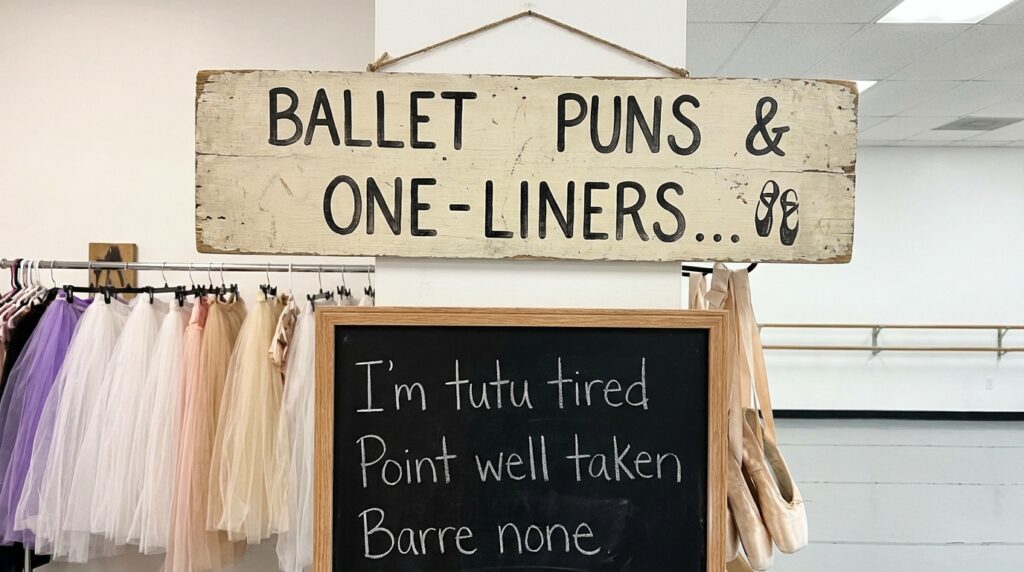 BALLET PUNS &
ONE-LINERS...
I'm tutu tired
Point well taken
Barre none